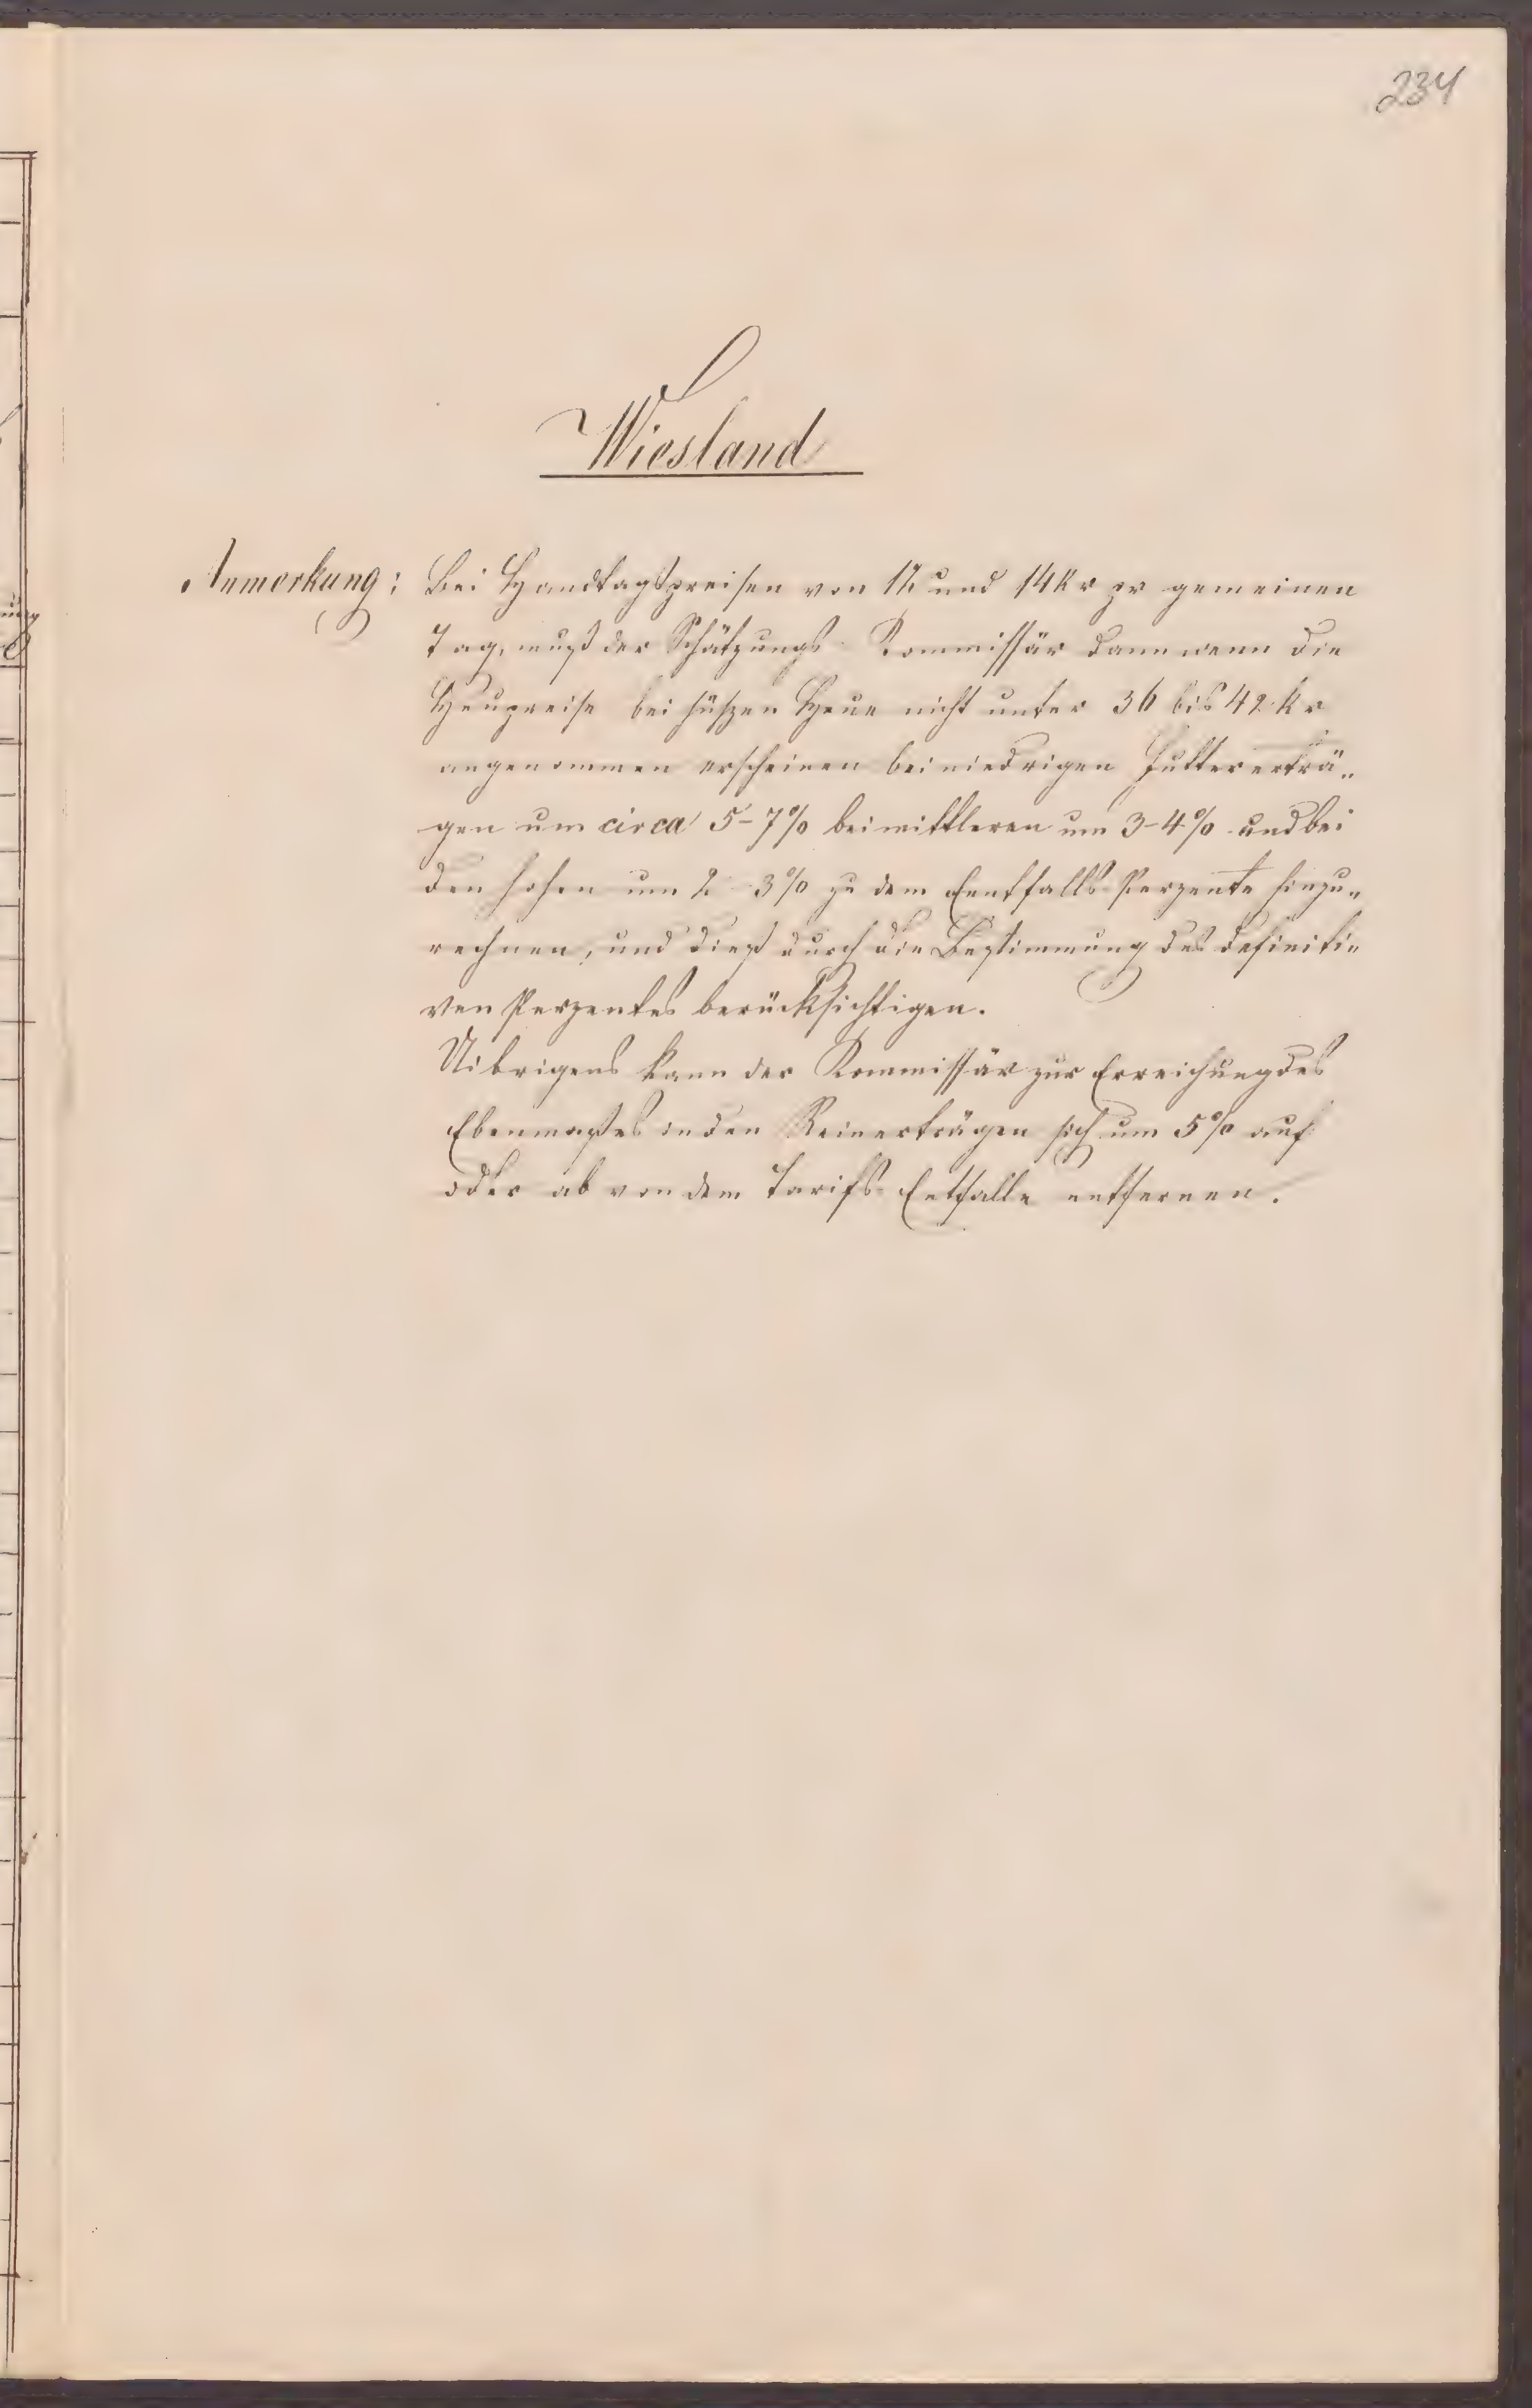 234
Wiesland
Anmerkung: Bei Handtagspreisen von 12 und 14 kr pr gemeinen
Tag, muß der Schätzungs Kommissär dann wenn die
Heupreise bei süßen Heue nicht unter 36 bis 42 kr
angenommen erscheinen bei niedrigen Futtererträ„
gen um circa 5-7% bei mittleren um 3-4% und bei
den hohen um 2-3% zu dem Entfalls-Perzente hinzu„
rechnen, und dieß durch die Bestimmung des definiti„
ven Perzentes berücksichtigen.
Uibrigens kann der Kommissär zur Erreichung des
Ebenmaßes in den Reinerträgen sich um 5% auf
oder ab von dem Tarifs-Entfalle entfernen.